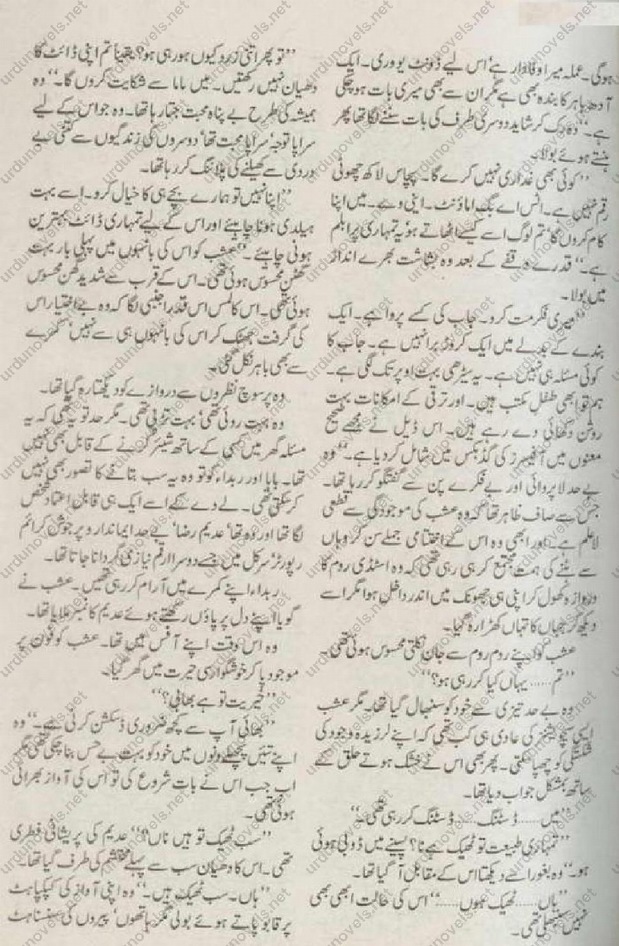 ہوگی۔ عملہ میرا وفادار ہے‘ اس لیے ڈونٹ یو وری۔ ایک
آدھ باہر کا بندہ بھی ہے مگر ان سے بھی میری بات ہوچکی
ہے۔“ وہ رک کر شاید دوسری طرف کی بات سننے لگا تھا پھر
ہنستے ہوئے بولا۔
”کوئی بھی غداری نہیں کرے گا۔ پچاس لاکھ چھوٹی
رقم نہیں ہے۔ اٹس اے بگ اماؤنٹ۔ اینی وے۔ میں اپنا
کام کروں گا‘ تم لوگ اسے کیسے اٹھاتے ہو یہ تمہاری پرابلم
ہے۔“ قدرے وقفے کے بعد وہ بشاشت بھرے انداز
میں بولا۔
”میری فکر مت کرو۔ جاب کی کسے پروا ہے۔ ایک
بندے کے بدلے میں ایک کروڑ برا نہیں ہے۔ جاب کا
کوئی مسئلہ ہی نہیں ہے۔ یہ سیڑھی بہت اوپر تک لگی ہے۔
ہم تو ابھی طفل مکتب ہیں۔ اور ترقی کے امکانات بہت
روشن دکھائی دے رہے ہیں۔ اس ڈیل نے مجھے صحیح
معنوں میں آفیسرز کی گڈ بکس میں شامل کردیا ہے۔“ وہ
بے حد لاپروائی اور بے فکرے پن سے گفتگو کررہا تھا۔
جس سے صاف ظاہر تھا کہ وہ عشب کی موجودگی سے قطعی
لاعلم ہے۔ اور ابھی وہ اس کے اختتامی جملے سن کر وہاں
سے ہٹنے کی ہمت مجتمع کر ہی رہی تھی کہ وہ اسٹڈی روم کا
دروازہ کھول کر اپنی ہی جھونک میں اندر داخل ہوا مگر اسے
دیکھ کر جہاں کا تہاں کھڑا رہ گیا۔
عشب کو اپنے روم روم سے جان نکلتی محسوس ہوئی تھی۔
”تم ...... یہاں کیا کررہی ہو؟“
وہ بے حد تیزی سے خود کو سنبھال گیا تھا۔ مگر عشب
ایسی سچویشنز کی عادی ہی کب تھی کہ اپنے لرزیدہ وجود کی
شکستگی کو چھپا سکتی۔ پھر بھی اس نے خشک ہوتے حلق کے
ساتھ بمشکل جواب دیا تھا۔
”میں ...... ڈسٹنگ ...... ڈسٹنگ کررہی تھی۔“
”تمہاری طبیعت تو ٹھیک ہے نا؟ پسینے میں ڈوبی ہوئی
ہو۔“ وہ بغور اسے دیکھتا اس کے مقابل آگیا تھا۔
”ہاں ...... ٹھیک ہوں ......“ اس کی حالت ابھی بھی
نہیں سنبھلی تھی۔
”تو پھر اتنی زرد کیوں ہورہی ہو؟ یقیناً تم اپنی ڈائٹ کا
دھیان نہیں رکھتیں۔ میں ماما سے شکایت کروں گا۔“ وہ
ہمیشہ کی طرح بے پناہ محبت جتا رہا تھا۔ وہ جو اس کے لیے
سراپا توجہ‘ سراپا محبت تھا‘ دوسروں کی زندگیوں سے کتنی بے
دردی سے کھیلنے کی پلاننگ کررہا تھا۔
”اپنا نہیں تو ہمارے بچے ہی کا خیال کرو۔ اسے بہت
ہیلدی ہونا چاہیے اور اس کے لیے تمہاری ڈائٹ بہترین
ہونی چاہیے۔“ عشب کو اس کی بانہوں میں پہلی بار بہت
گھٹن محسوس ہوئی تھی۔ اس کے قرب سے شدید گھن محسوس
ہوئی تھی۔ اس کا لمس اس قدر اجنبی لگا کہ وہ بے اختیار اس
کی گرفت جھٹک کر اس کی بانہوں ہی سے نہیں‘ کمرے
سے بھی باہر نکل گئی۔
وہ پرسوچ نظروں سے دروازے کو دیکھتا رہ گیا تھا۔
وہ بہت روئی تھی‘ بہت تڑپی تھی۔ مگر حد تو یہ تھی کہ یہ
مسئلہ گھر میں کسی کے ساتھ شیئر کرنے کے قابل بھی نہیں
تھا۔ بابا اور ربداء کو تو وہ یہ سب بتانے کا تصور بھی نہیں
کرسکتی تھی۔ لے دے کے اسے ایک ہی قابل اعتماد شخص
لگا تھا اور وہ تھا ”عدیم رضا“ بے حد ایماندار و پرجوش کرائم
رپورٹر سرکل میں جسے دوسرا ارقم نیازی گردانا جاتا تھا۔
ربداء اپنے کمرے میں آرام کررہی تھیں۔ عشب نے
گویا اپنے دل پر پاؤں رکھتے ہوئے عدیم کا نمبر ملایا تھا۔
وہ اس وقت اپنے آفس میں تھا۔ عشب کو فون پر
موجود پاکر خوشگوار سی حیرت میں گھر گیا۔
”خیریت تو ہے بھابی؟“
”بھائی آپ سے کچھ ضروری ڈسکشن کرنی ہے۔“ وہ
اپنے تئیں پچھلے دنوں میں خود کو بہت بے حس بنا چکی تھی مگر
اب جب اس نے بات شروع کی تو اس کی آواز بھرائی
ہوئی تھی۔
”سب ٹھیک تو ہیں ناں؟“ عدیم کی پریشانی فطری
تھی۔ اس کا دھیان سب سے پہلے کی طرف گیا تھا۔
”ہاں۔ سب ٹھیک ہیں۔“ وہ اپنی آواز کی کپکپاہٹ
پر قابو پاتے ہوئے بولی مگر ہاتھوں‘ پیروں کی سنسناہٹ